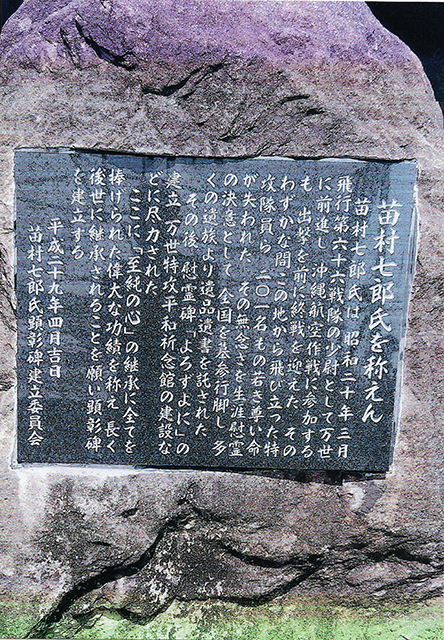 苗村七郎氏を称えん
苗村七郎氏は、昭和二十年三月
飛行第六十六戦隊の少尉として万世
に前進し、沖縄航空作戦に参加する
も、出撃を前に終戦を迎えた。その
わずかな間、この地から飛び立った特
攻隊員ら、二〇一名もの若き尊い命
が失われた。その無念さを生涯慰霊
の決意として、全国を墓参行脚し、多
くの遺族より遺品遺書を託された。
その後、慰霊碑「よろずよに」の
建立、万世特攻平和祈念館の建設な
どに尽力された。
ここに「至純の心」の継承に全てを
捧げられた偉大な功績を称え、長く
後世に継承されることを願い顕彰碑
を建立する。
平成二十九年四月吉日
苗村七郎氏顕彰碑建立委員会